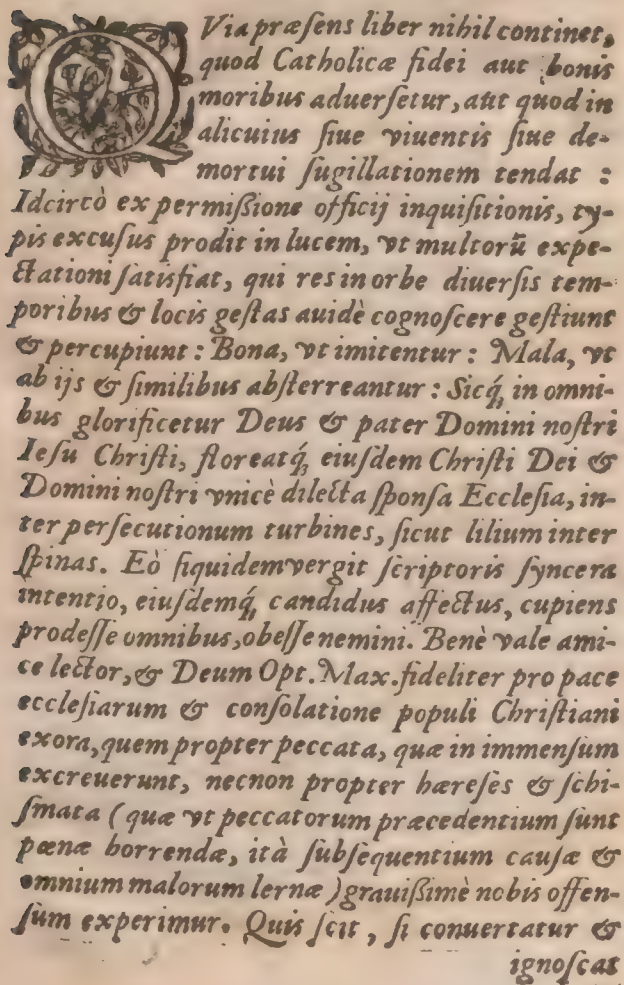 QVia præſens liber nihil continet,
quod Catholicæ fidei aut bonis
moribus aduerſetur, aut quod in
alicuius ſiue viuentis ſiue de-
mortui ſugillationem tendat :
Idcircò ex permiſſione officij inquiſitionis, ty-
pis excuſus prodit in lucem, vt multorũ expe-
ctationi ſatisfiat, qui res in orbe diuerſis tem-
poribus & locis geſtas auidè cognoſcere geſtiunt
& percupiunt : Bona, vt imitentur : Mala, vt
ab ijs & ſimilibus abſterreantur : Sicq́; in omni-
bus glorificetur Deus & pater Domini noſtri
Ieſu Chriſti, floreatq́; eiuſdem Chriſti Dei &
Domini noſtri vnicè dilecta ſponſa Eccleſia, in-
ter perſecutionum turbines, ſicut lilium inter
ſpinas. Eò ſiquidem vergit ſcriptoris ſyncera
intentio, eiuſdemq́; candidus affectus, cupiens
prodeſſe omnibus, obeſſe nemini. Benè vale ami-
ce lector, & Deum Opt. Max. fideliter pro pace
eccleſiarum & conſolatione populi Chriſtiani
exora, quem propter peccata, quæ in immenſum
excreuerunt, necnon propter hæreſes & ſchi-
ſmata (quæ vt peccatorum præcedentium ſunt
pœnæ horrendæ, ità ſubſequentium cauſæ &
omnium malorum lernæ) grauiſſimè nobis offen-
ſum experimur. Quis ſcit, ſi conuertatur &
ignoſcat